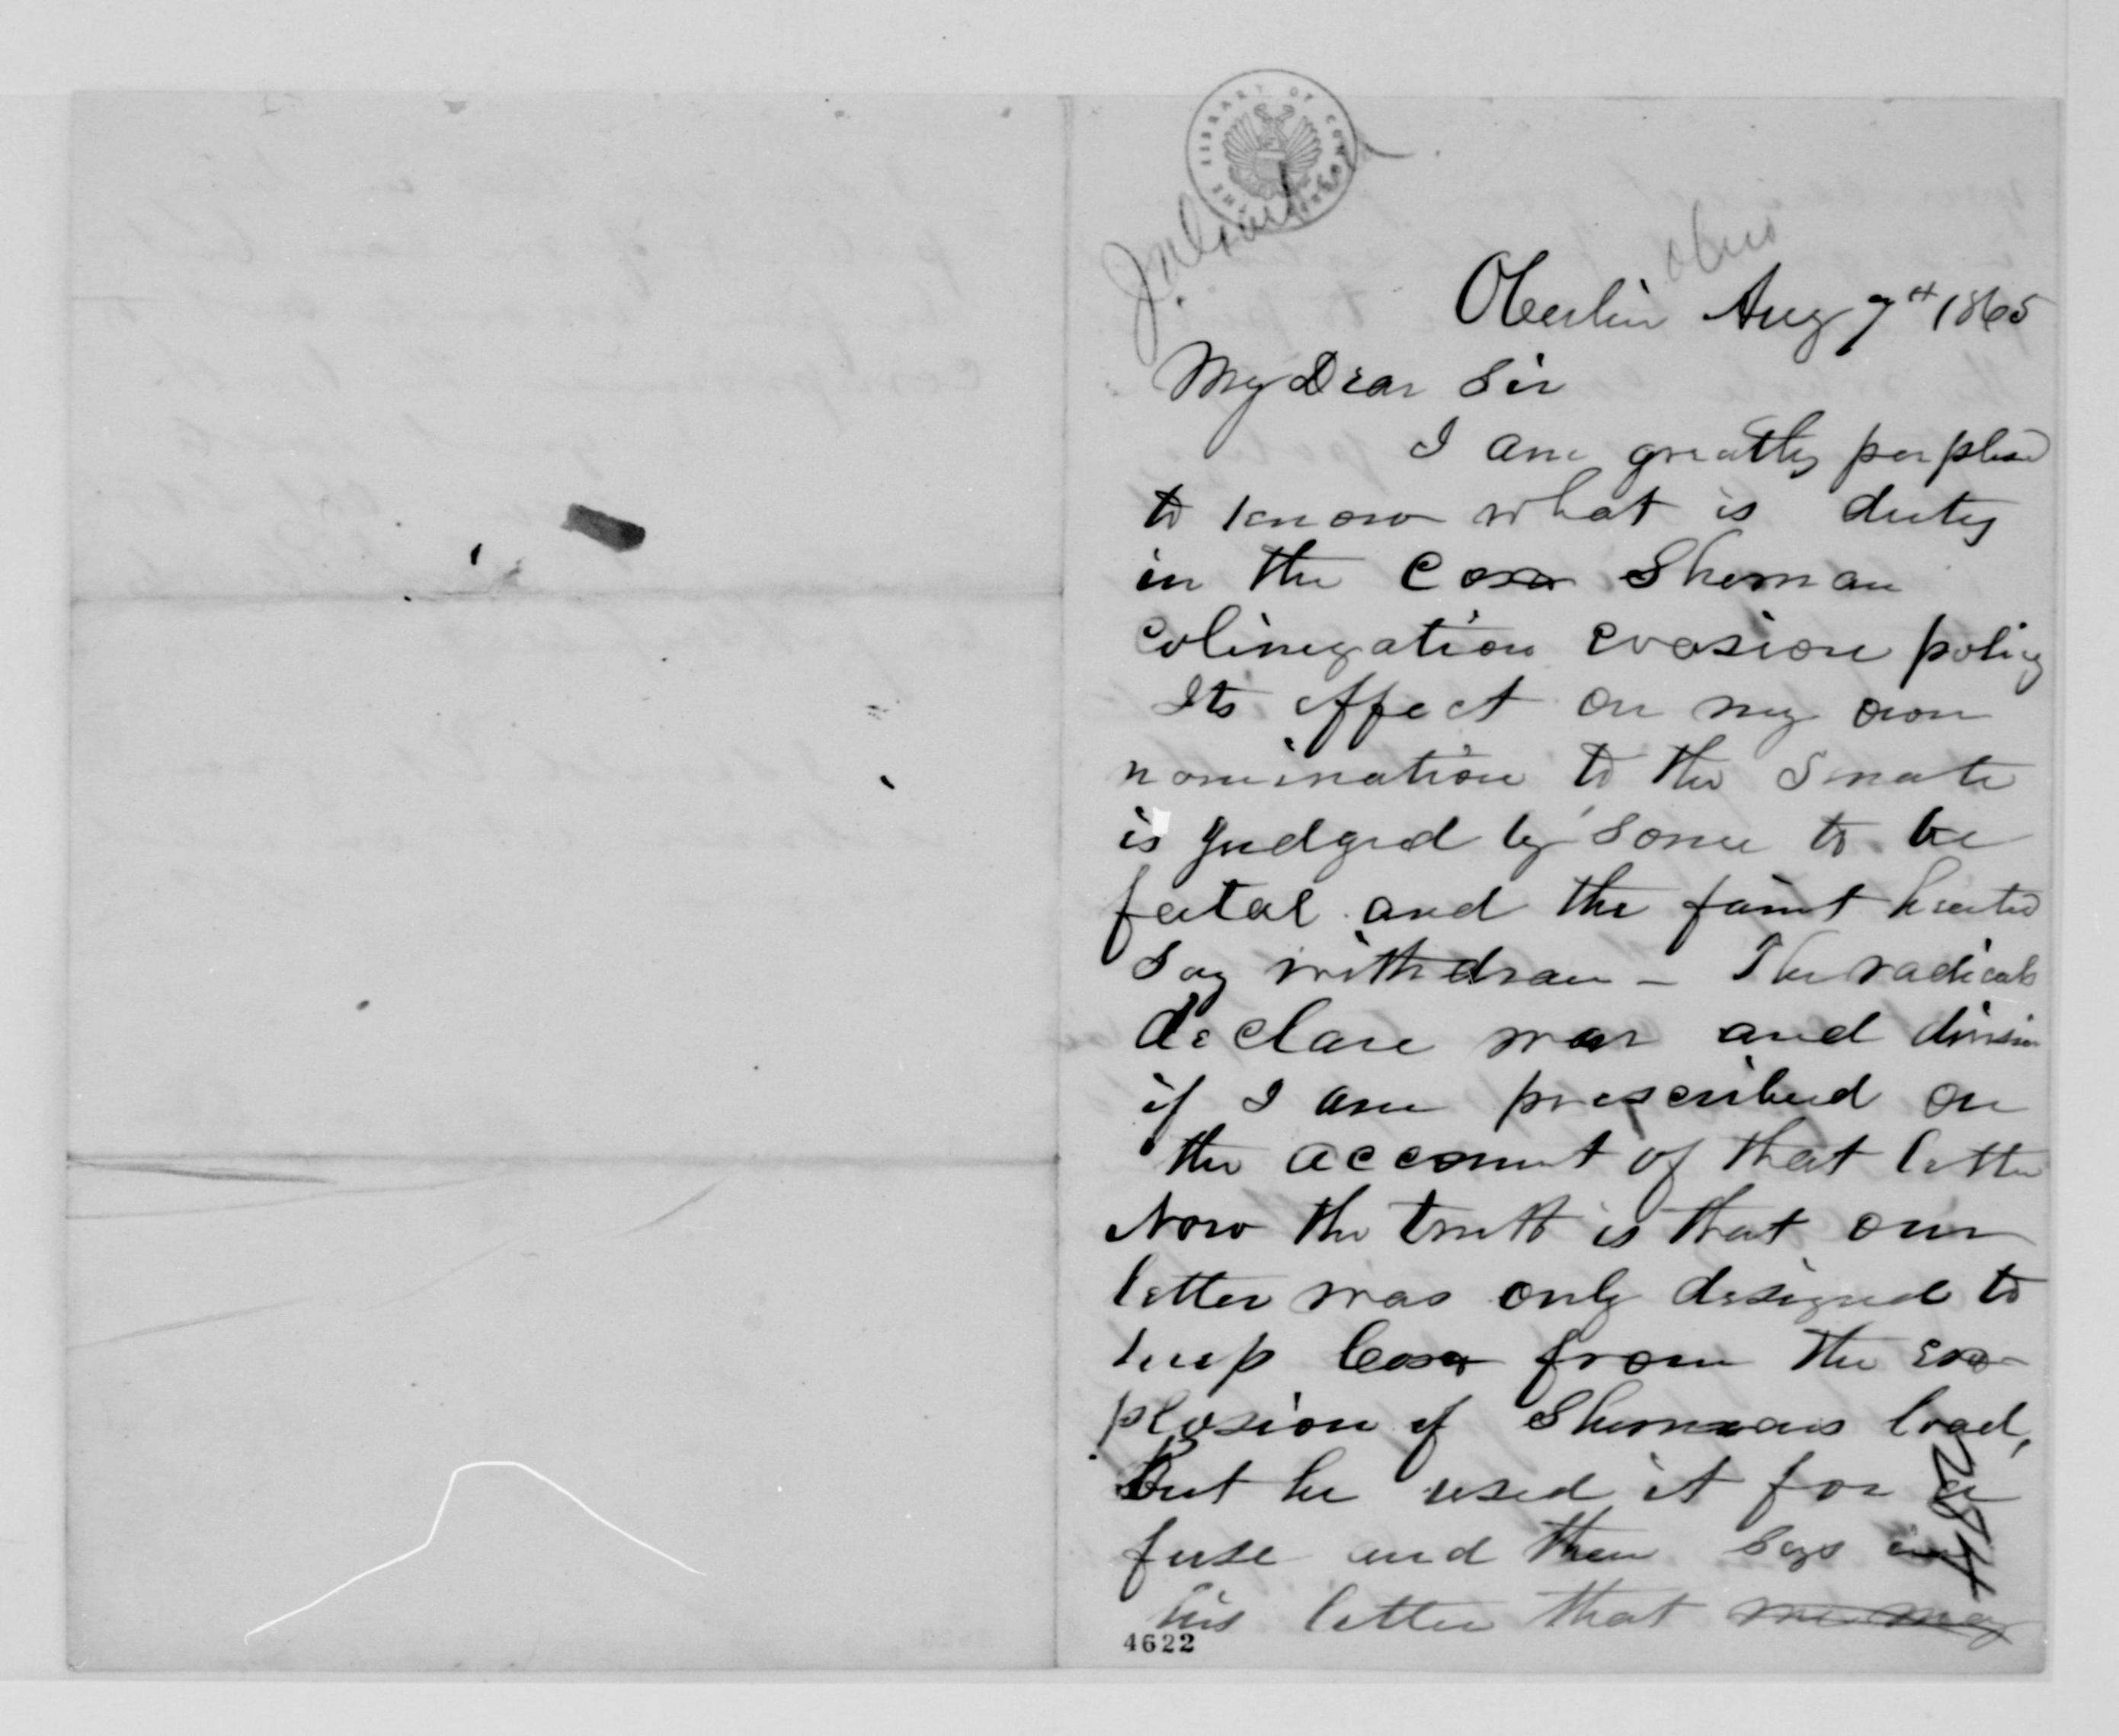 THE LIBRARY OF CONGRESS
Ohio
Oberlin Aug 7th 1865
My Dear Sir
I am greatly perplexed
to know what is duty
in the Cox Sherman
evasion policy
Its effect on my own
nomination to the Senate
is judged by some to be
fatal and the faint hearted
say withdraw – The radicals
declare war and division
if I am proscribed on
the account of that letter
Now the truth is that our
letter was only designed to
keep Cox from the ex
plosion of Shermans load,
But he used it for a
fuse and then says in
his letter that
284
4622